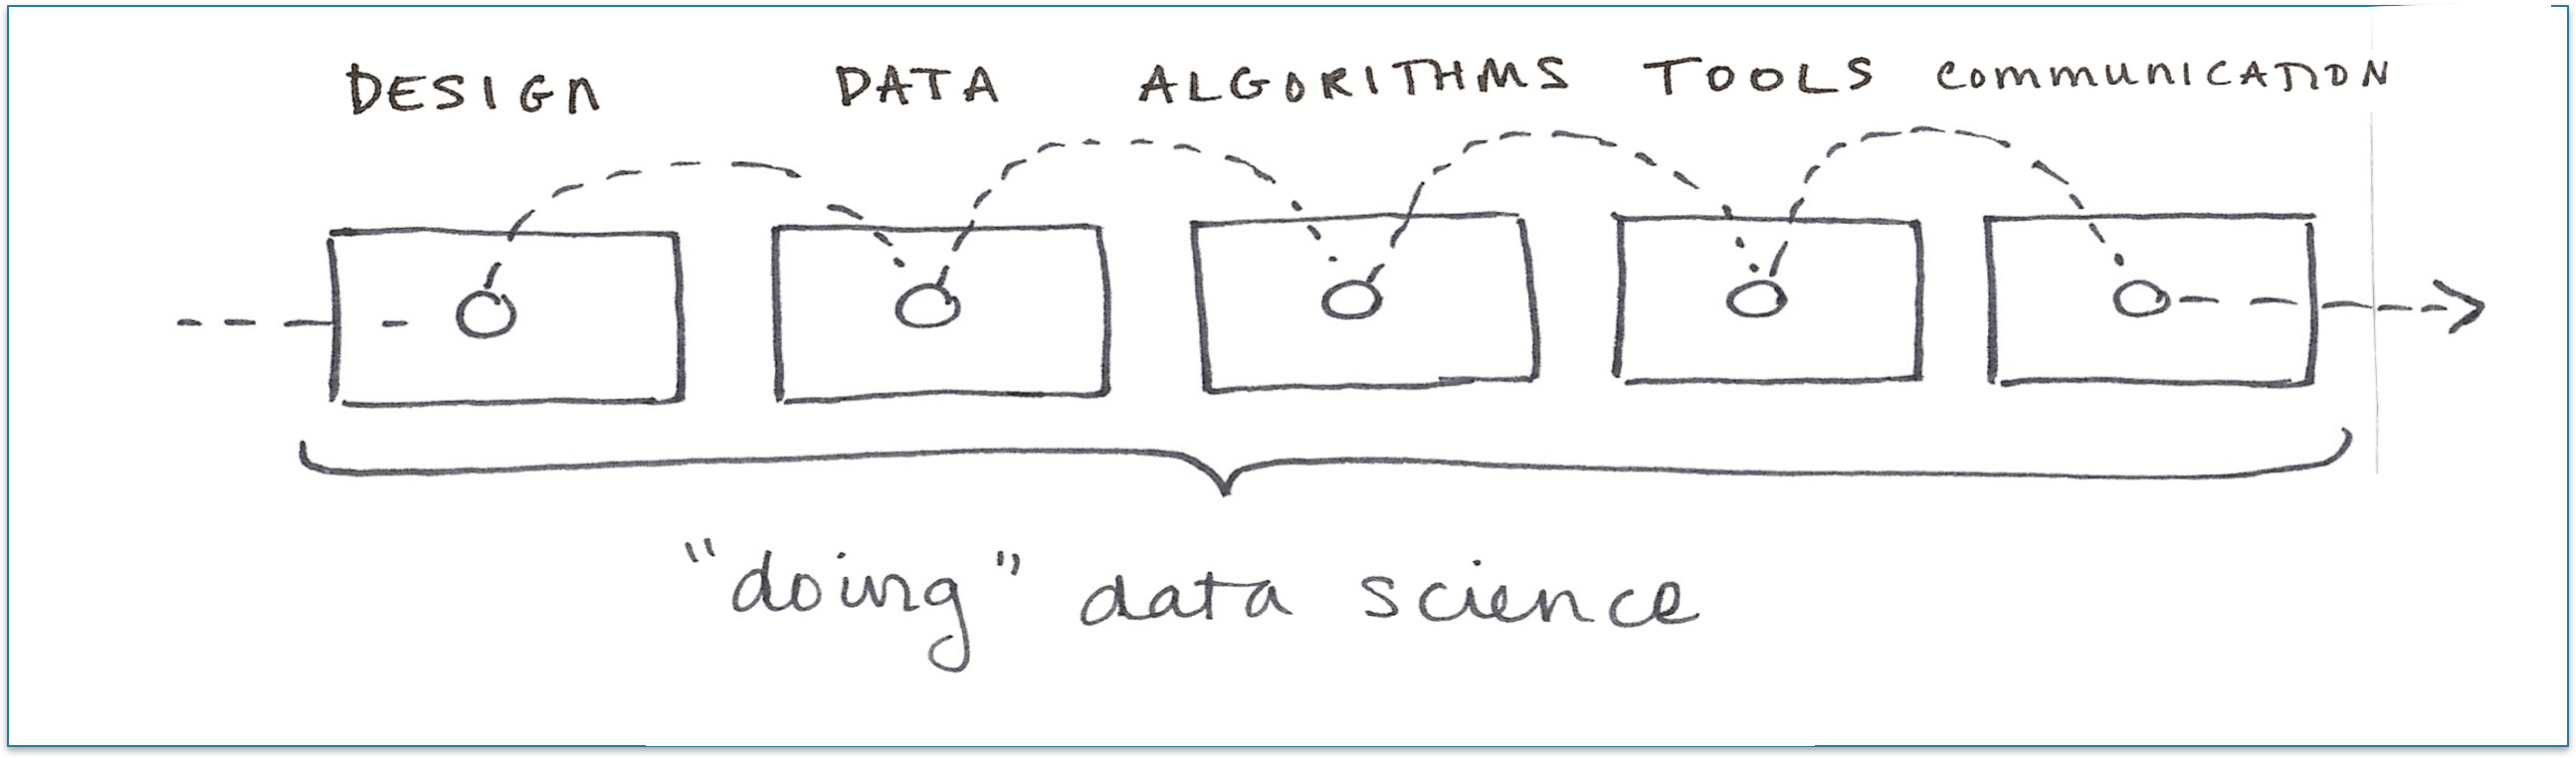 DESIGN DATA ALGORITHMS TOOLS COMMUNICATION
"doing" data science